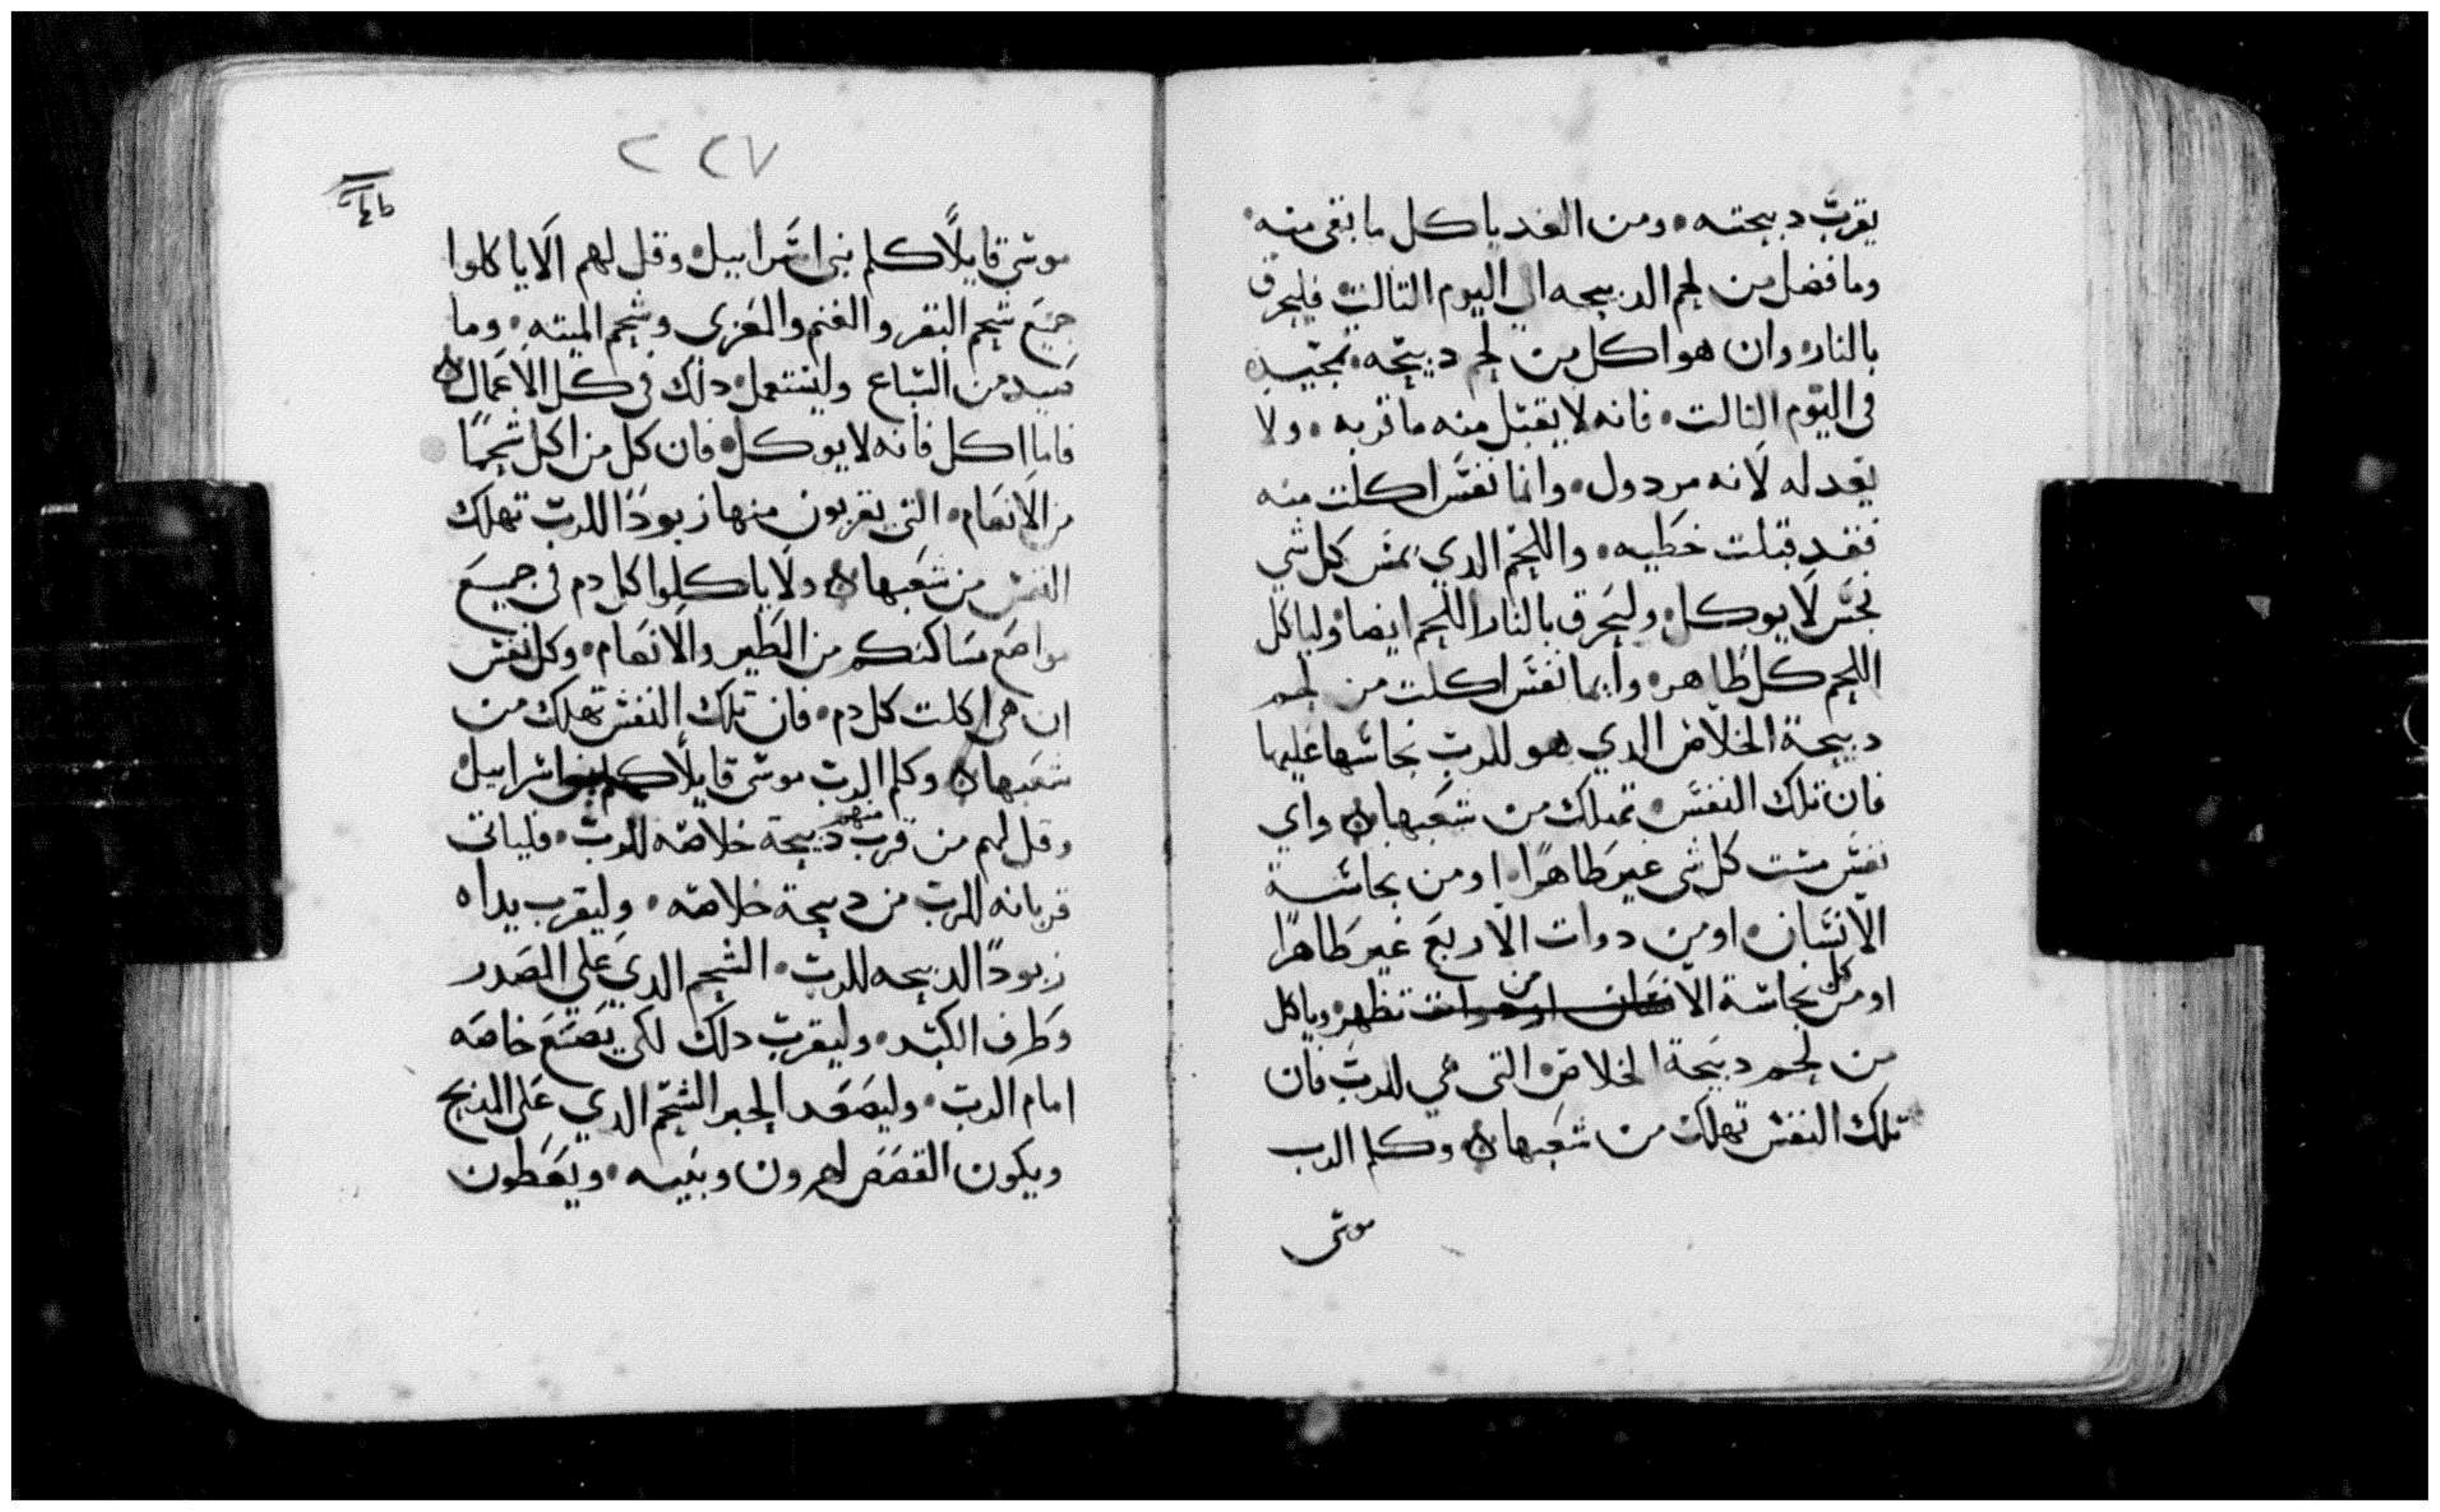 يقرب دبيحته ۰ ومن الغد ياكل ما بقى منه ۰
وما فضل من لحم الدبيحه الي اليوم التالت فليحرق
بالنار ۰ وان هو اكل من لحم دبيحه
فى اليوم التالت ۰ فانه لا يقبل منه ما قربه ۰ ولا
يعد له لانه مردول ۰ وانما نفس اكلت منه
فقد قبلت خطيه ۰ واللحم الدي يمس كل شي
نجس لا يوكل ۰ وليحرق بالنار اللحم ايضا ۰ ولياكل
اللحم كل طاهر ۰ وايما نفس اكلت من لحم
دبيحة الخلاص الدي هو للرب نجاستها عليها
فان تلك النفس ۰ تهلك من شعبها ۰ واي
نفس مست كل شي غير طاهرا ۰ او من نجاسة
الانسان ۰ او من دوات الاربع غير طاهرا
او من كل نجاسة من تطهر وياكل
من لحم دبيحة الخلاص ۰ التى هي للرب فان
تلك النفس تهلك من شعبها ۰ وكلم الرب
موسى
٢٢٧
موسى قايلًا كلم بنى اسراييل ۰ وقل لهم الا ياكلوا
جميع شحم البقر والغنم والمعزى وشحم الميته ۰ وما
صيد من السباع وليستعمل ۰ دلك فى كل الاعمال ۰
فاما اكل فانه لا يوكل ۰ فان كل من اكل شحمًا
من الانعام ۰ التى يقربون منها زبودًا للرب تهلك
النفس من شعبها ۰ ولا ياكلوا كل دم فى جميع
مواضع مساكنكم من الطير والانعام ۰ وكل نفس
ان هى اكلت كل دم ۰ فان تلك النفس تهلك من
شعبها ۰ وكلم الرب موسى قايلًا كلم بنى اسراييل
وقل لهم من قرب منهم دبيحة خلاصه للرب ۰ فلياتى
قربانه للرب من دبيحة خلاصه ۰ وليقرب يداه
زبودًا الدبيحه للرب ۰ الشحم الدي على الصدر
وطرف الكبد ۰ وليقرب دلك لكى يصنع خاصه
امام الرب ۰ وليصعد الحبر الشحم الدي على المدبح
ويكون القصص لهرون وبنيه ۰ ويعطون